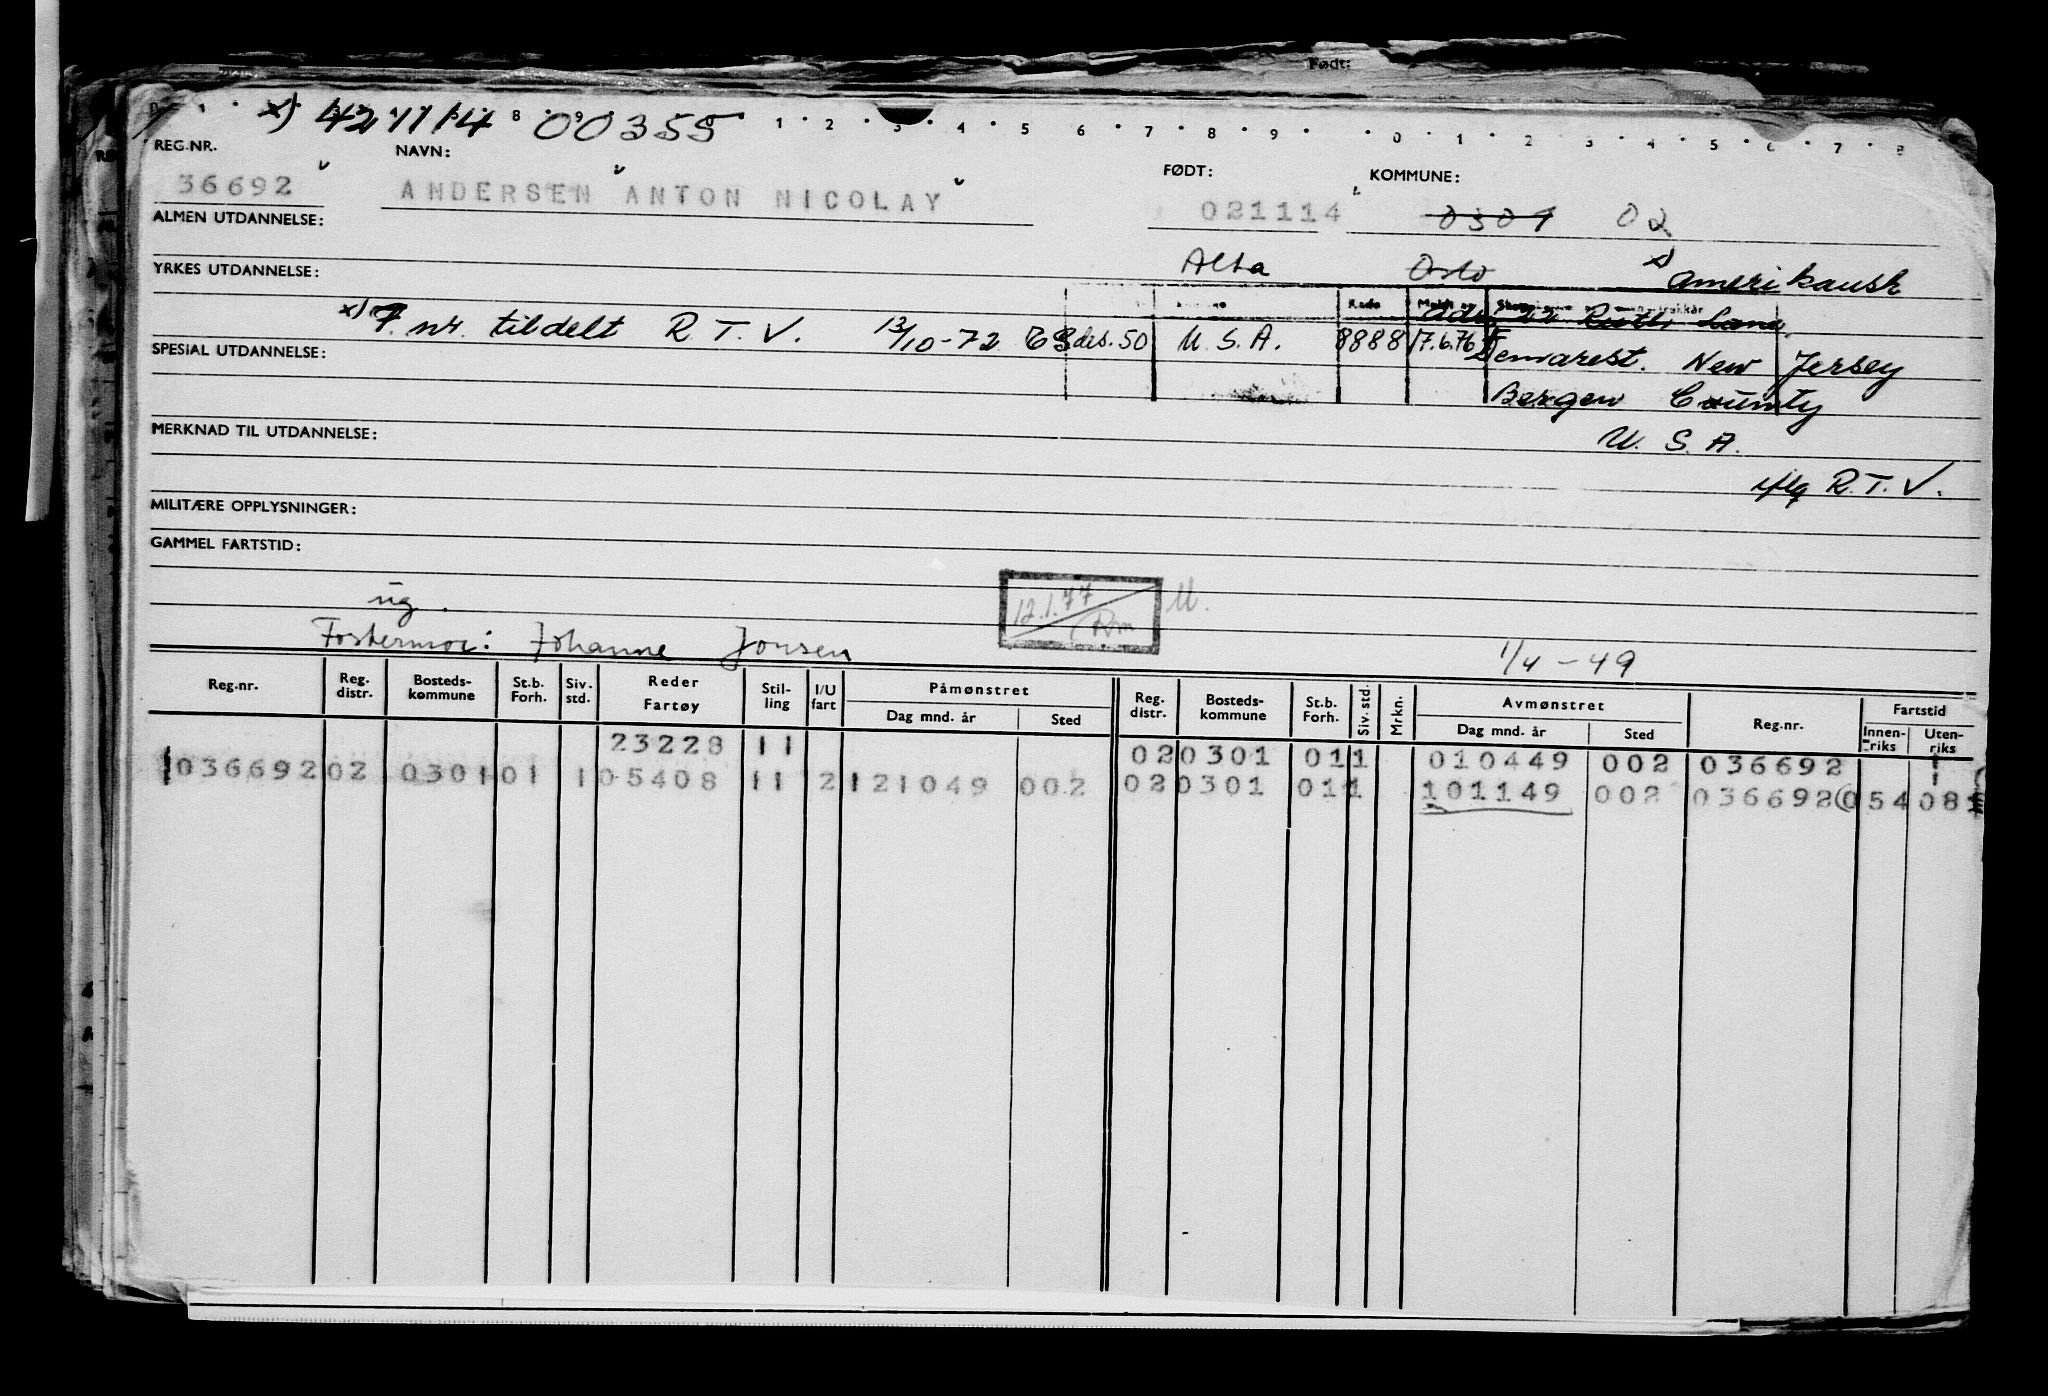 Født:
x) 421114 00355 1 2 3 4 5 6 7 8 9 0 1 2 3 4 5 6 7 8
REG.NR. NAVN: FØDT: KOMMUNE:
36692 ANDERSEN ANTON NICOLAY 021114 0301 02
ALMEN UTDANNELSE:
Alta Oslo x) Amerikansk
YRKES UTDANNELSE:
Kode
Adr. 22 Ruth Lane
x) F. nr. tildelt R. T. V. 13/10-72 ES des. 50 U. S. A. 8888 17.6.76 Demarest. New Jersey
SPESIAL UTDANNELSE:
Bergen County
MERKNAD TIL UTDANNELSE:
U. S. A.
iflg R. T. V.
MILITÆRE OPPLYSNINGER:
GAMMEL FARTSTID:
ug.
12.1.77 Rm U.
Fostermor: Johanne Jonsen 1/4-49
Reg.nr. Reg. distr. Bosteds-kommune St.b. Forh. Siv. std. Reder Fartøy Stil-ling I/U fart Påmønstret Dag mnd. år Sted Reg. distr. Bosteds-kommune St.b. Forh. Siv. std. Mrkn. Avmønstret Dag mnd. år Sted Reg.nr. Fartstid Innen-riks Uten-riks
23228 11 02 0301 01 1 010449 002 036692
036692 02 0301 01 1 05408 11 2 121049 002 02 0301 01 1 101149 002 036692 054081